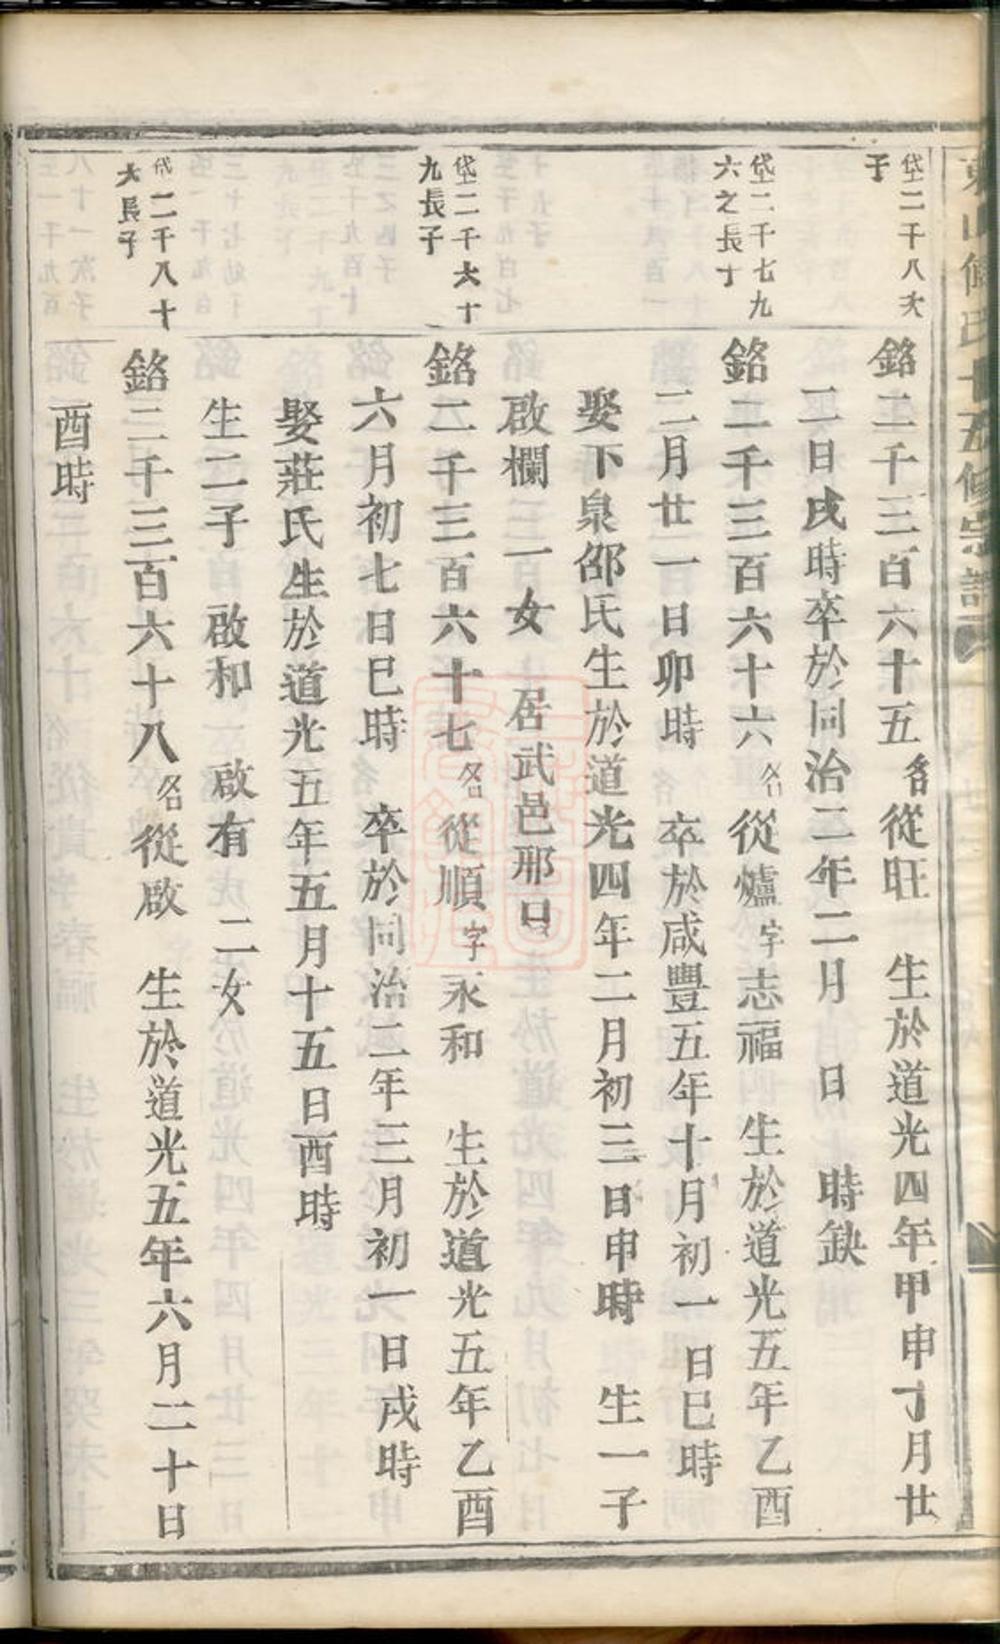 東山脩氏十五修宗譜
垈二千八次
子
銘二千三百六十五名從旺 生於道光四年甲申丁月廿
二日戌時卒於同治二年二月 日 時缺
垈二千七九
六之長丁
銘二千三百六十六名從爐字志福 生於道光五年乙酉
二月廿一日卯時 卒於咸豐五年十月初一日巳時
娶下泉邵氏生於道光四年二月初三日申時 生一子
啟欄 一女 居武邑那口
垈二千六十
九長子
銘二千三百六十七名從順字永和 生於道光五年乙酉
六月初七日巳時 卒於同治二年三月初一日戌時
娶莊氏生於道光五年五月十五日酉時
生二子 啟和 啟有 二女
二千八十
六長子
銘二千三百六十八名從啟 生於道光五年六月二十日
酉時